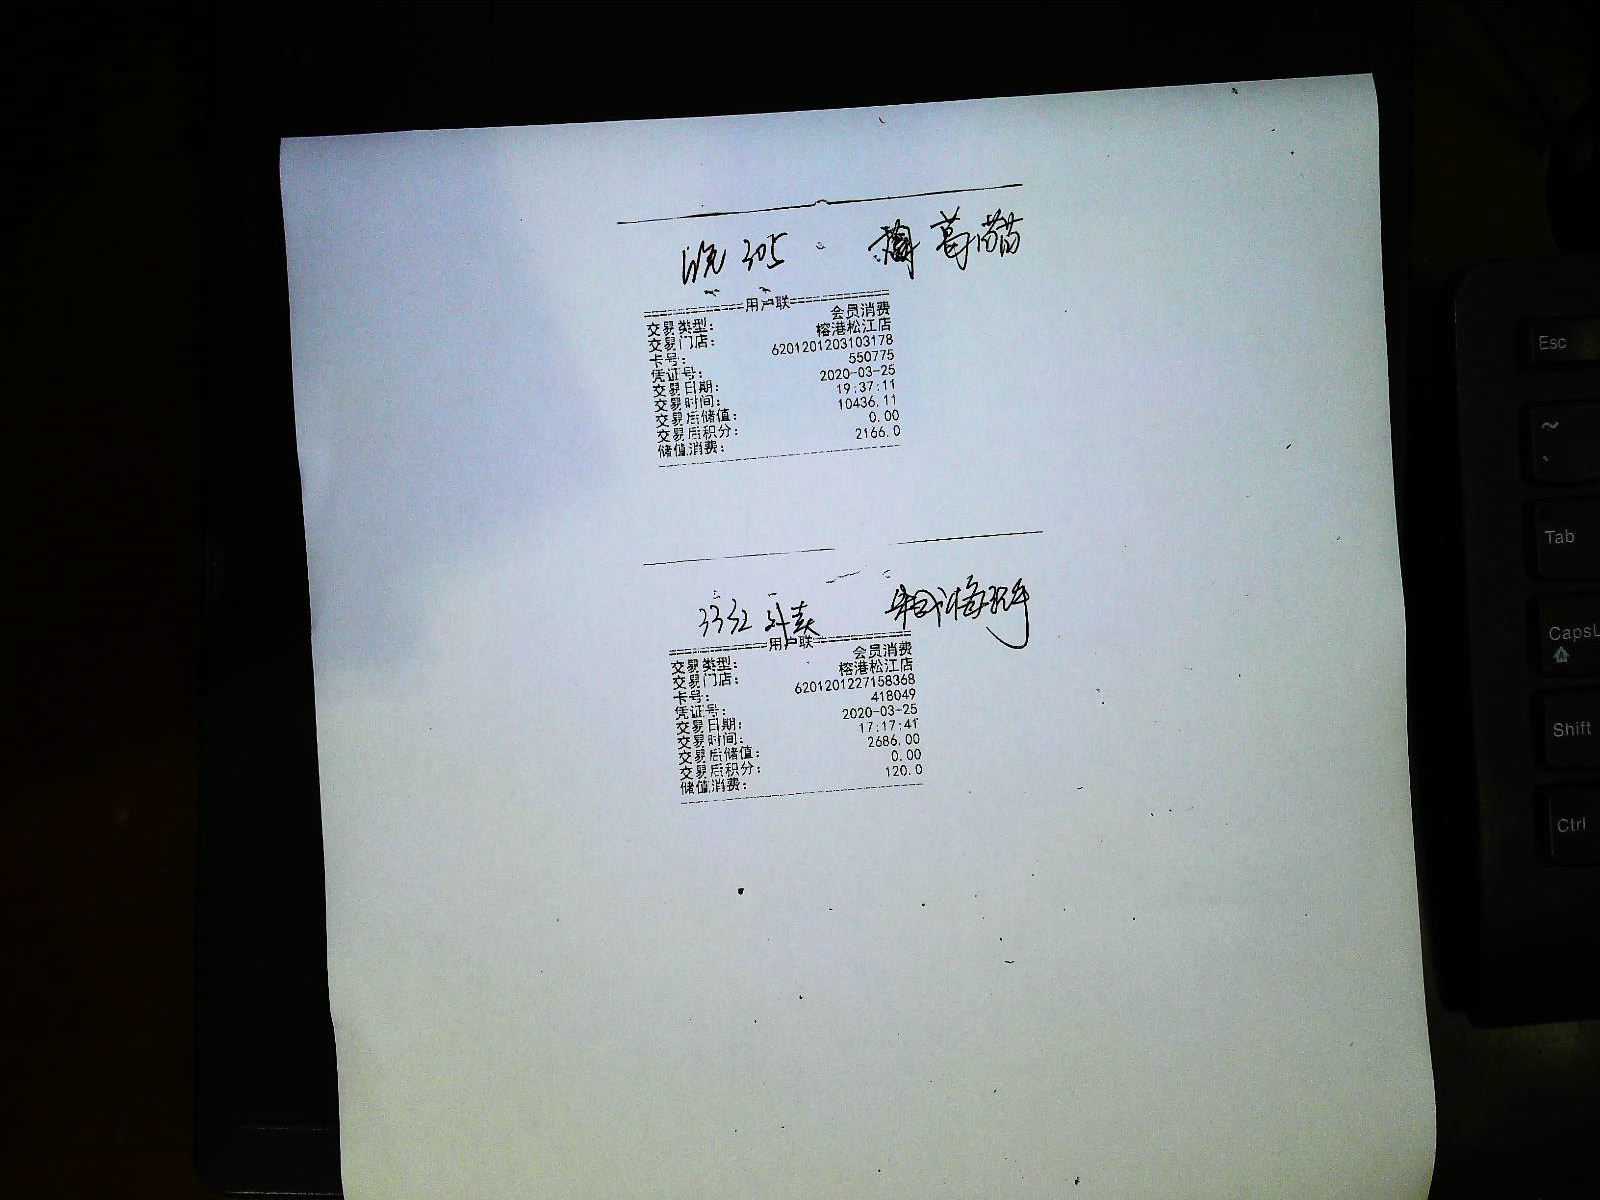 晚305
葛
============用户联============
交易类型： 会员消费
交易门店： 榕港松江店
卡号： 6201201203103178
凭证号： 550775
交易日期： 2020-03-25
交易时间： 19:37:11
交易后储值： 10436.11
交易后积分： 0.00
储值消费： 2166.0
3332 外卖
============用户联============
交易类型： 会员消费
交易门店： 榕港松江店
卡号： 6201201227158368
凭证号： 418049
交易日期： 2020-03-25
交易时间： 17:17:41
交易后储值： 2686.00
交易后积分： 0.00
储值消费： 120.0
Esc
~
、
Tab
CapsL
Shift
Ctrl